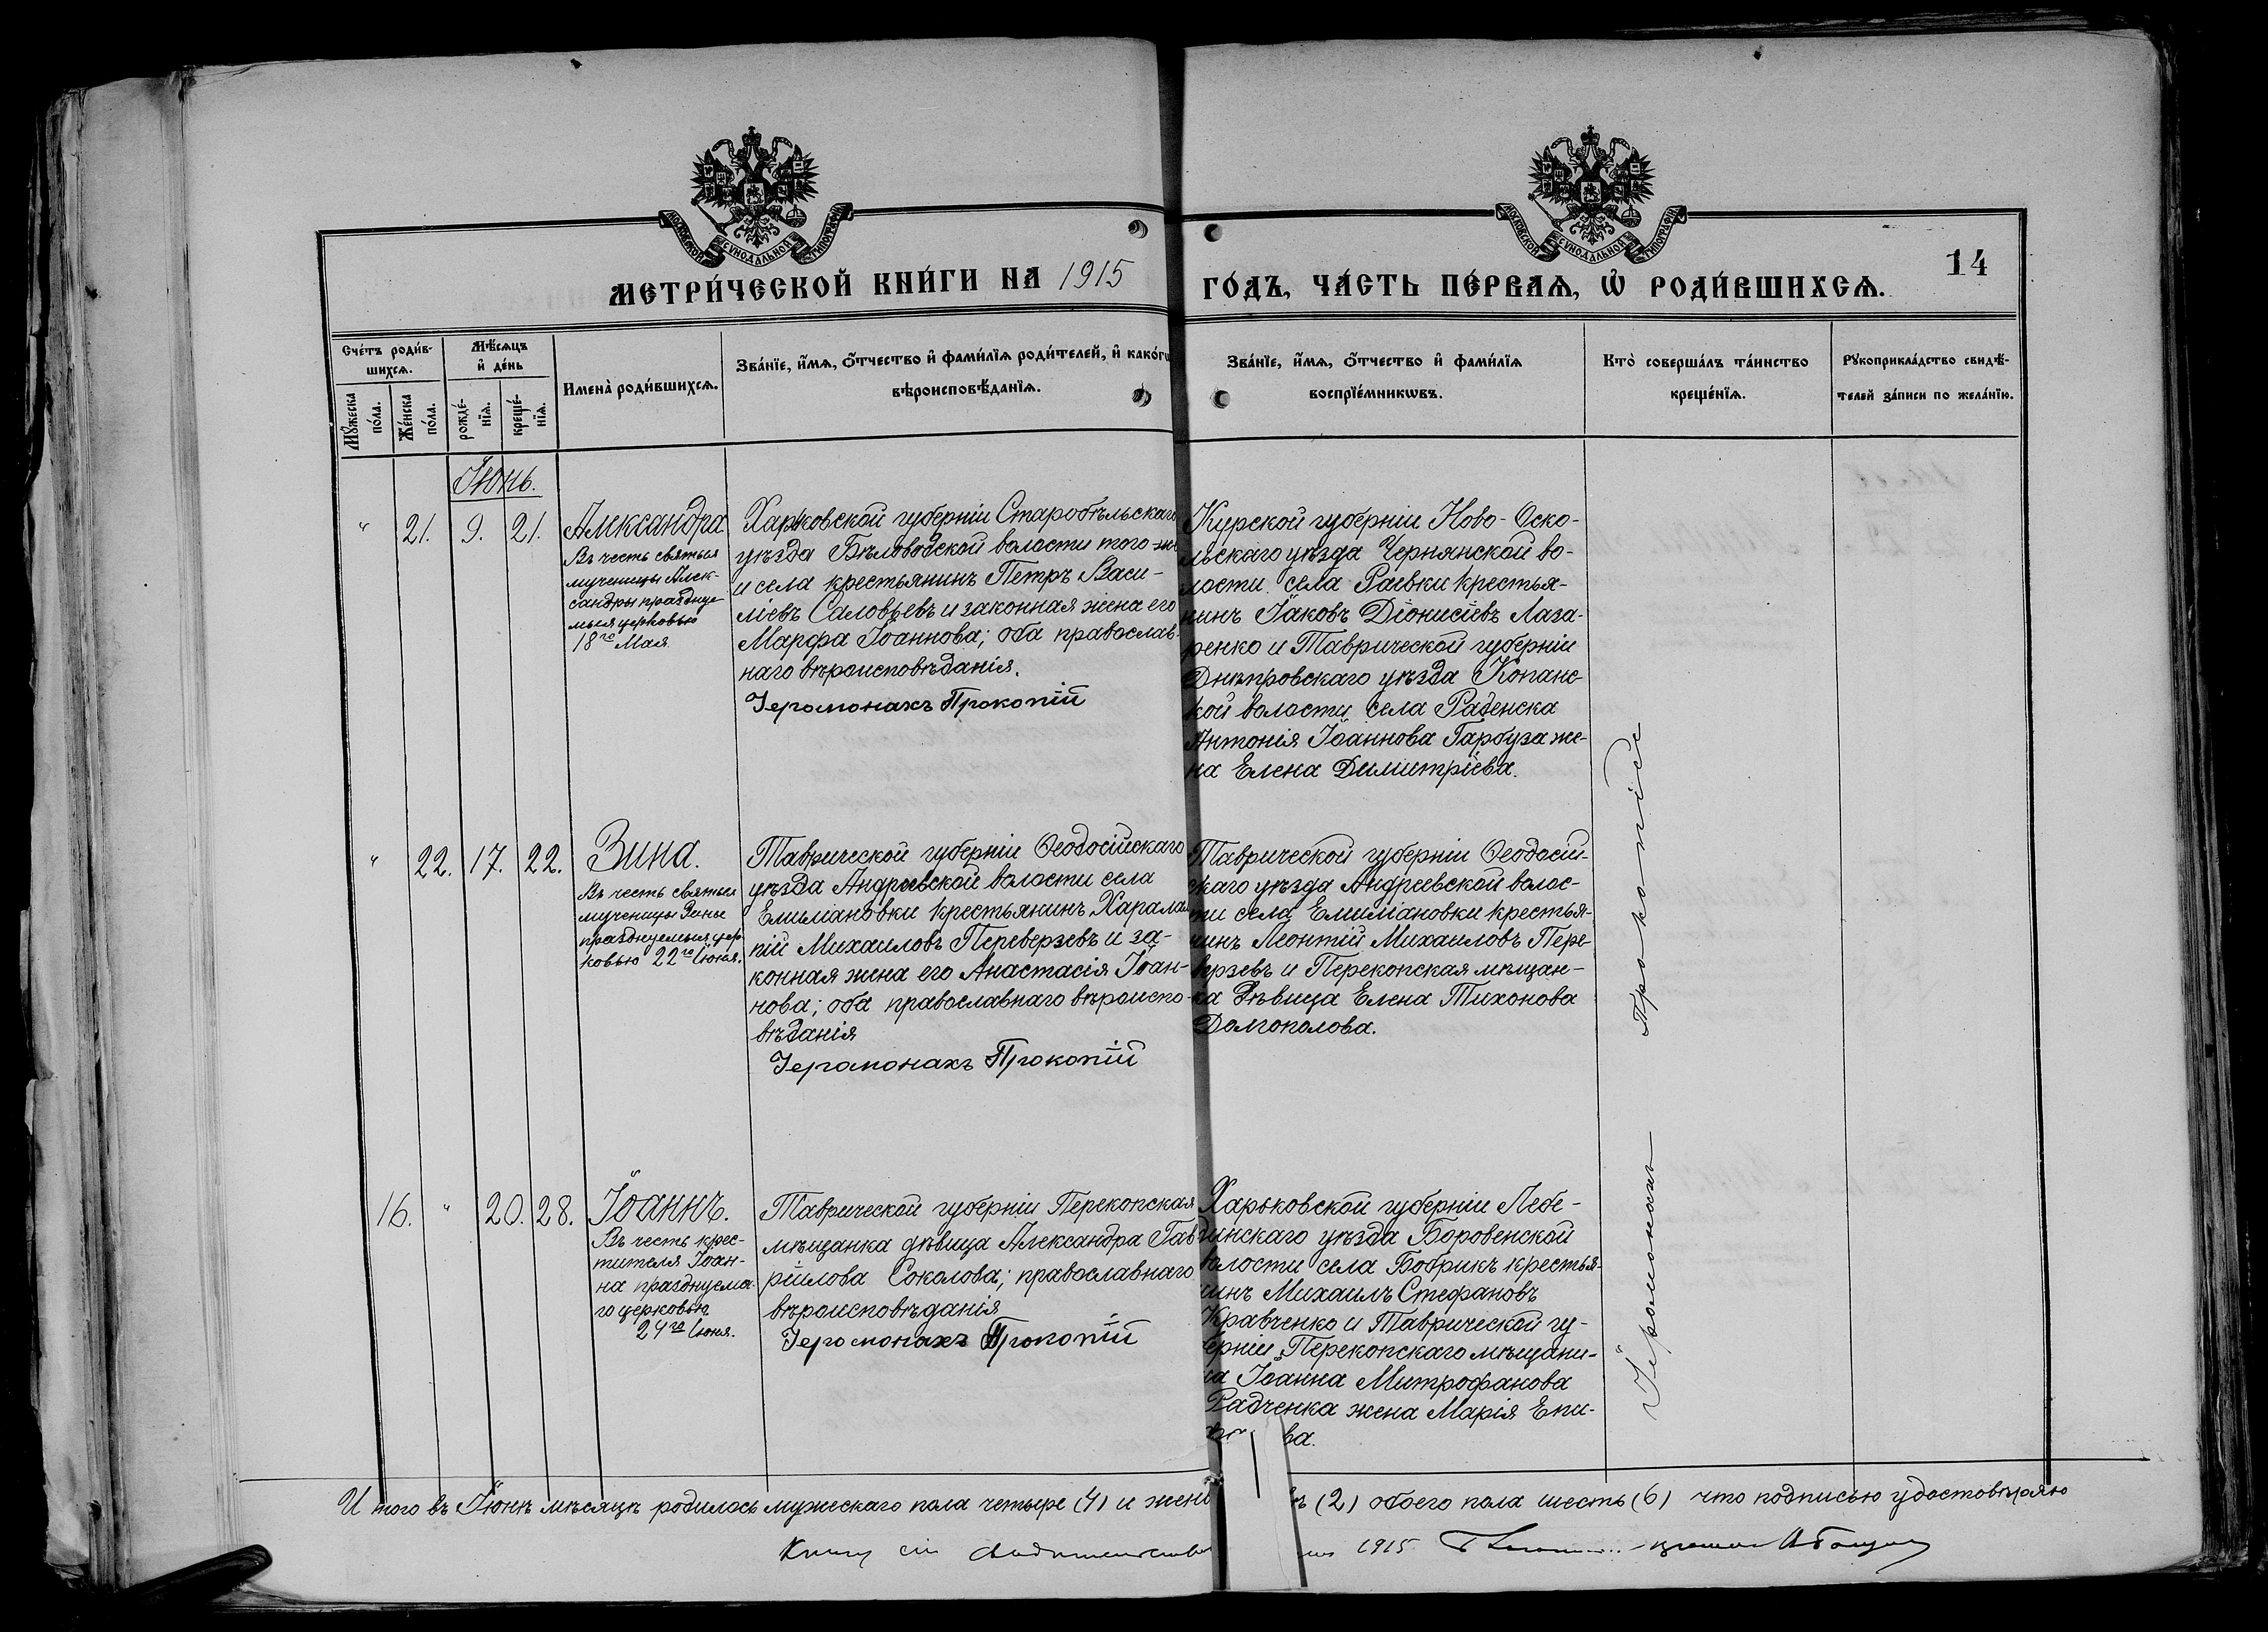 МОСКОВСКОЙ СѴНОДАЛЬНОЙ ТИПОГРАФІИ
МОСКОВСКОЙ СѴНОДАЛЬНОЙ ТИПОГРАФІИ
МЕТРИ́ЧЕСКОЙ КНИ́ГИ НА 1915
ГО́ДЪ, ЧА́СТЬ ПЕ́РВАѦ, Ѡ҆ РОДИ́ВШИХСѦ.
14
Сче́тъ роди́в-
шихсѧ.
Мꙋ́жеска
по́ла.
Же́нска
по́ла.
Мѣ́сѧцъ
и҆ де́нь
рожде́-
нїѧ.
креще́-
нїѧ.
Имена̀ роди́вшихсѧ.
Зва́нїе, и҆́мѧ, ѻ҆́тчество и҆ фами́лїѧ роди́телей, и҆ како́гѡ
вѣроисповѣ́данїѧ.
Зва́нїе, и҆́мѧ, ѻ҆́тчество и҆ фами́лїѧ
воспрїе́мникѡвъ.
Кто̀ соверша́лъ та́инство
креще́нїѧ.
Рꙋкоприкла́дство свидѣ́-
телей за́писи по жела́нїю.
Іюнь.
" 21. 9. 21.
Александра
Въ честь святыя
мученицы Алек-
сандры празднуе-
мыя церковью
18го Мая.
Харьковской губерніи Старобѣльскаго
уѣзда Бѣловодской волости того-же
и села крестьянинъ Петръ Васи-
ліевъ Саловьевъ и законная жена его
Марфа Іоаннова; оба православ-
наго вѣроисповѣданія.
Іеромонахъ Прокопій
Курской губерніи Ново-Оско-
льскаго уѣзда Чернянской во-
лости села Раевки крестья-
нинъ Іаковъ Діонисіевъ Лаза-
ренко и Таврической губерніи
Днѣпровскаго уѣзда Копанс-
кой волости села Раденска
Антонія Іоаннова Гарбуза же-
на Елена Димитріева.
" 22. 17. 22.
Зина.
Въ честь святыя
мученицы Зины
празднуемыя цер-
ковью 22го Іюня.
Таврической губерніи Ѳеодосійскаго
уѣзда Андреевской волости села
Емиліановки крестьянинъ Харалам
пій Михаиловъ Переверзевъ и за-
конная жена его Анастасія Іоан-
нова; оба православнаго вѣроиспо-
вѣданія
Іеромонахъ Прокопій
Таврической губерніи Ѳеодосій-
скаго уѣзда Андреевской волос-
ти села Емиліановки крестья-
нинъ Леонтій Михаиловъ Пере-
верзевъ и Перекопская мѣщан-
ка дѣвица Елена Тихонова
Долгополова.
16. " 20. 28.
Іоаннъ.
Въ честь крес-
тителя Іоан-
на празднуема-
го церковью
24го Іюня.
Таврической губерніи Перекопская
мѣщанка дѣвица Александра Гав
ріилова Соколова; православнаго
вѣроисповѣданія
Іеромонахъ Прокопій
Харьковской губерніи Лебе-
динскаго уѣзда Боровенской
волости села Бобрикъ крестья-
нинъ Михаилъ Стефановъ
Кравченко и Таврической гу-
берніи Перекопскаго мѣщани-
на Іоанна Митрофанова
Радченка жена Марія Епи-
ва.
Іеромонахъ Прокопій
И того въ Іюнѣ мѣсяцѣ родилось мужескаго пола четыре (4) и жен
(2) обоего пола шесть (6) что подписью удостовѣряю
Книгу сію
1915